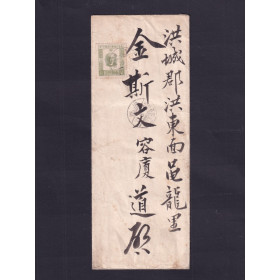 洪城郡洪東面邑龍里
金斯文容厦道啓